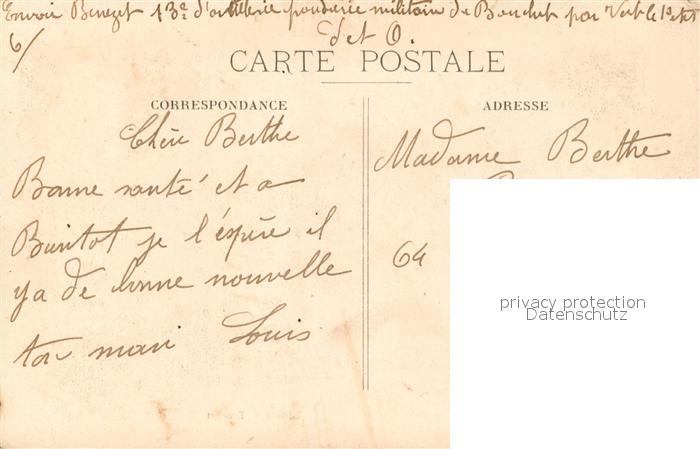 Envoi Benezet 13e d'artillerie poudrerie militaire du Bouchet par Vert le Petit
S et O.
6/
CARTE POSTALE
CORRESPONDANCE
ADRESSE
Chère Berthe
Bonne santé et a
Bientot je l'éspère il
ya de bonne nouvelle
ton mari Louis
Madame Berthe
64
privacy protection
Datenschutz